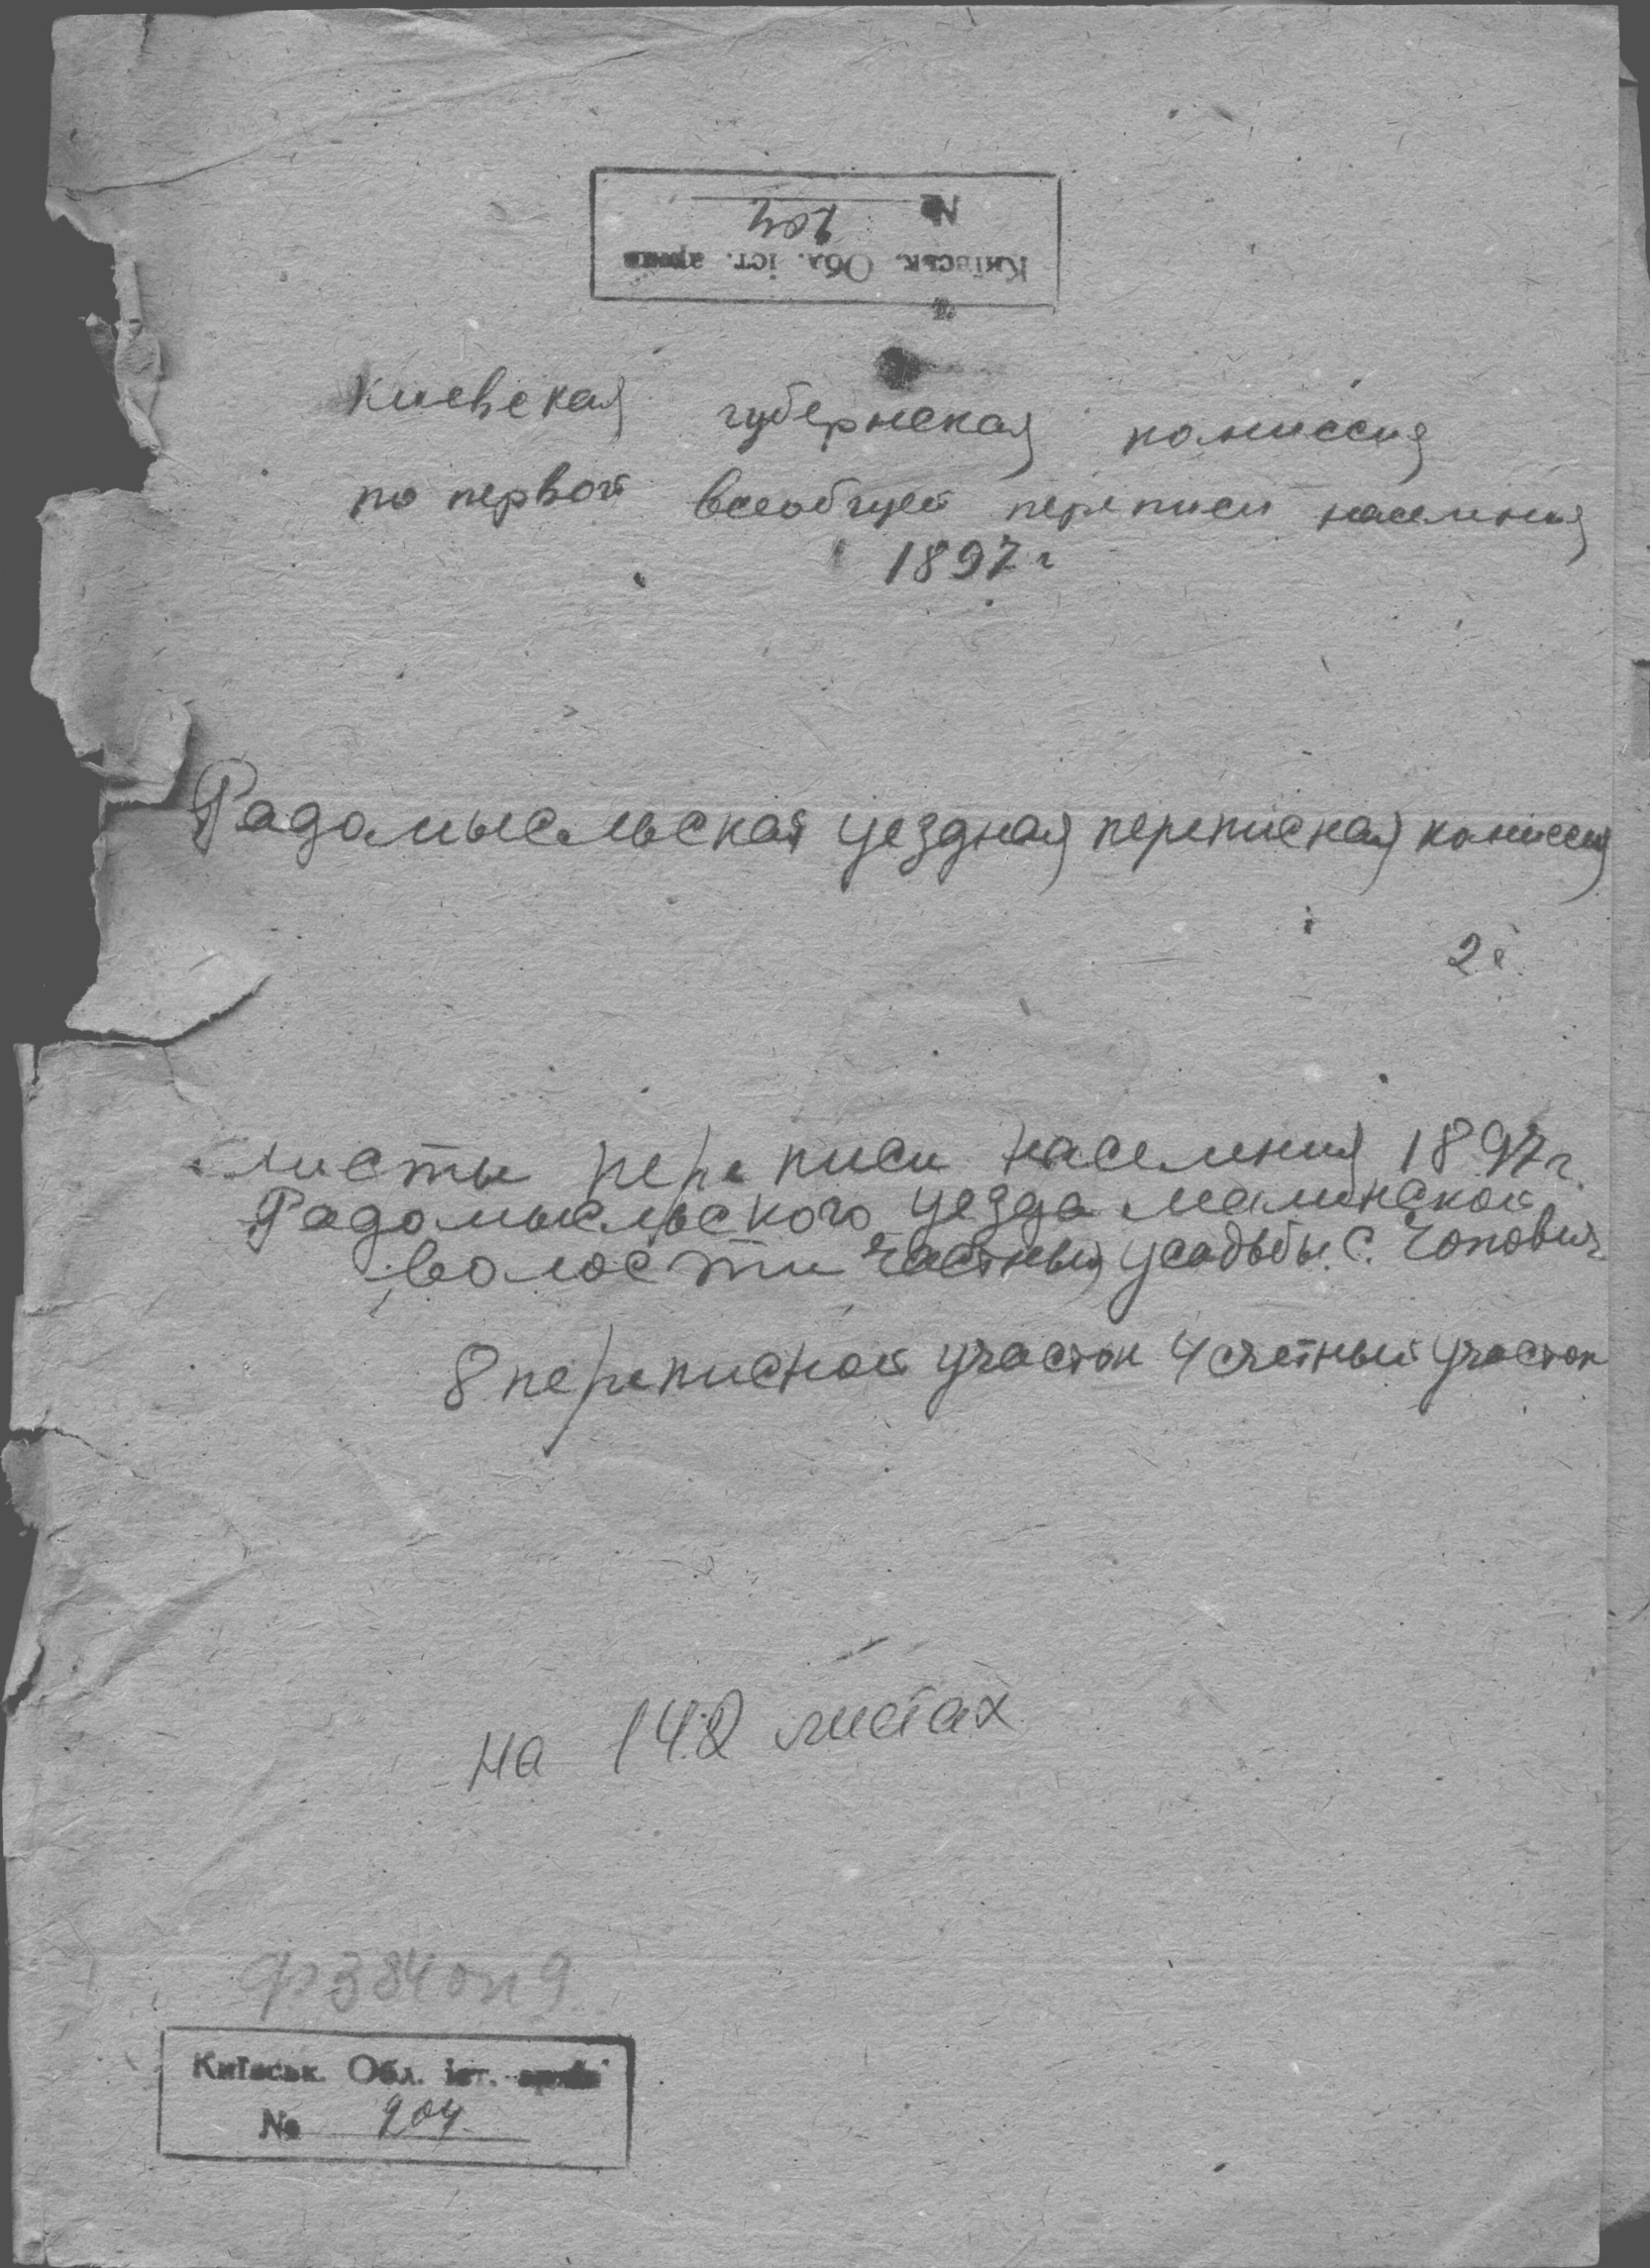 № 204
Київськ. Обл. іст. архів
Киевская губернская комиссия
по первой всеобщей переписи населения
1897 г
Радомысльская уездная переписная комиссия
Листы переписи населения 1897 г.
Радомысльского уезда Малинской
волости частныя усадьбы с. Чопович
8 переписной участок 4 счетный участок
на 142 листах
ф 384 оп 9
Київськ. Обл. іст. архів
№ 204